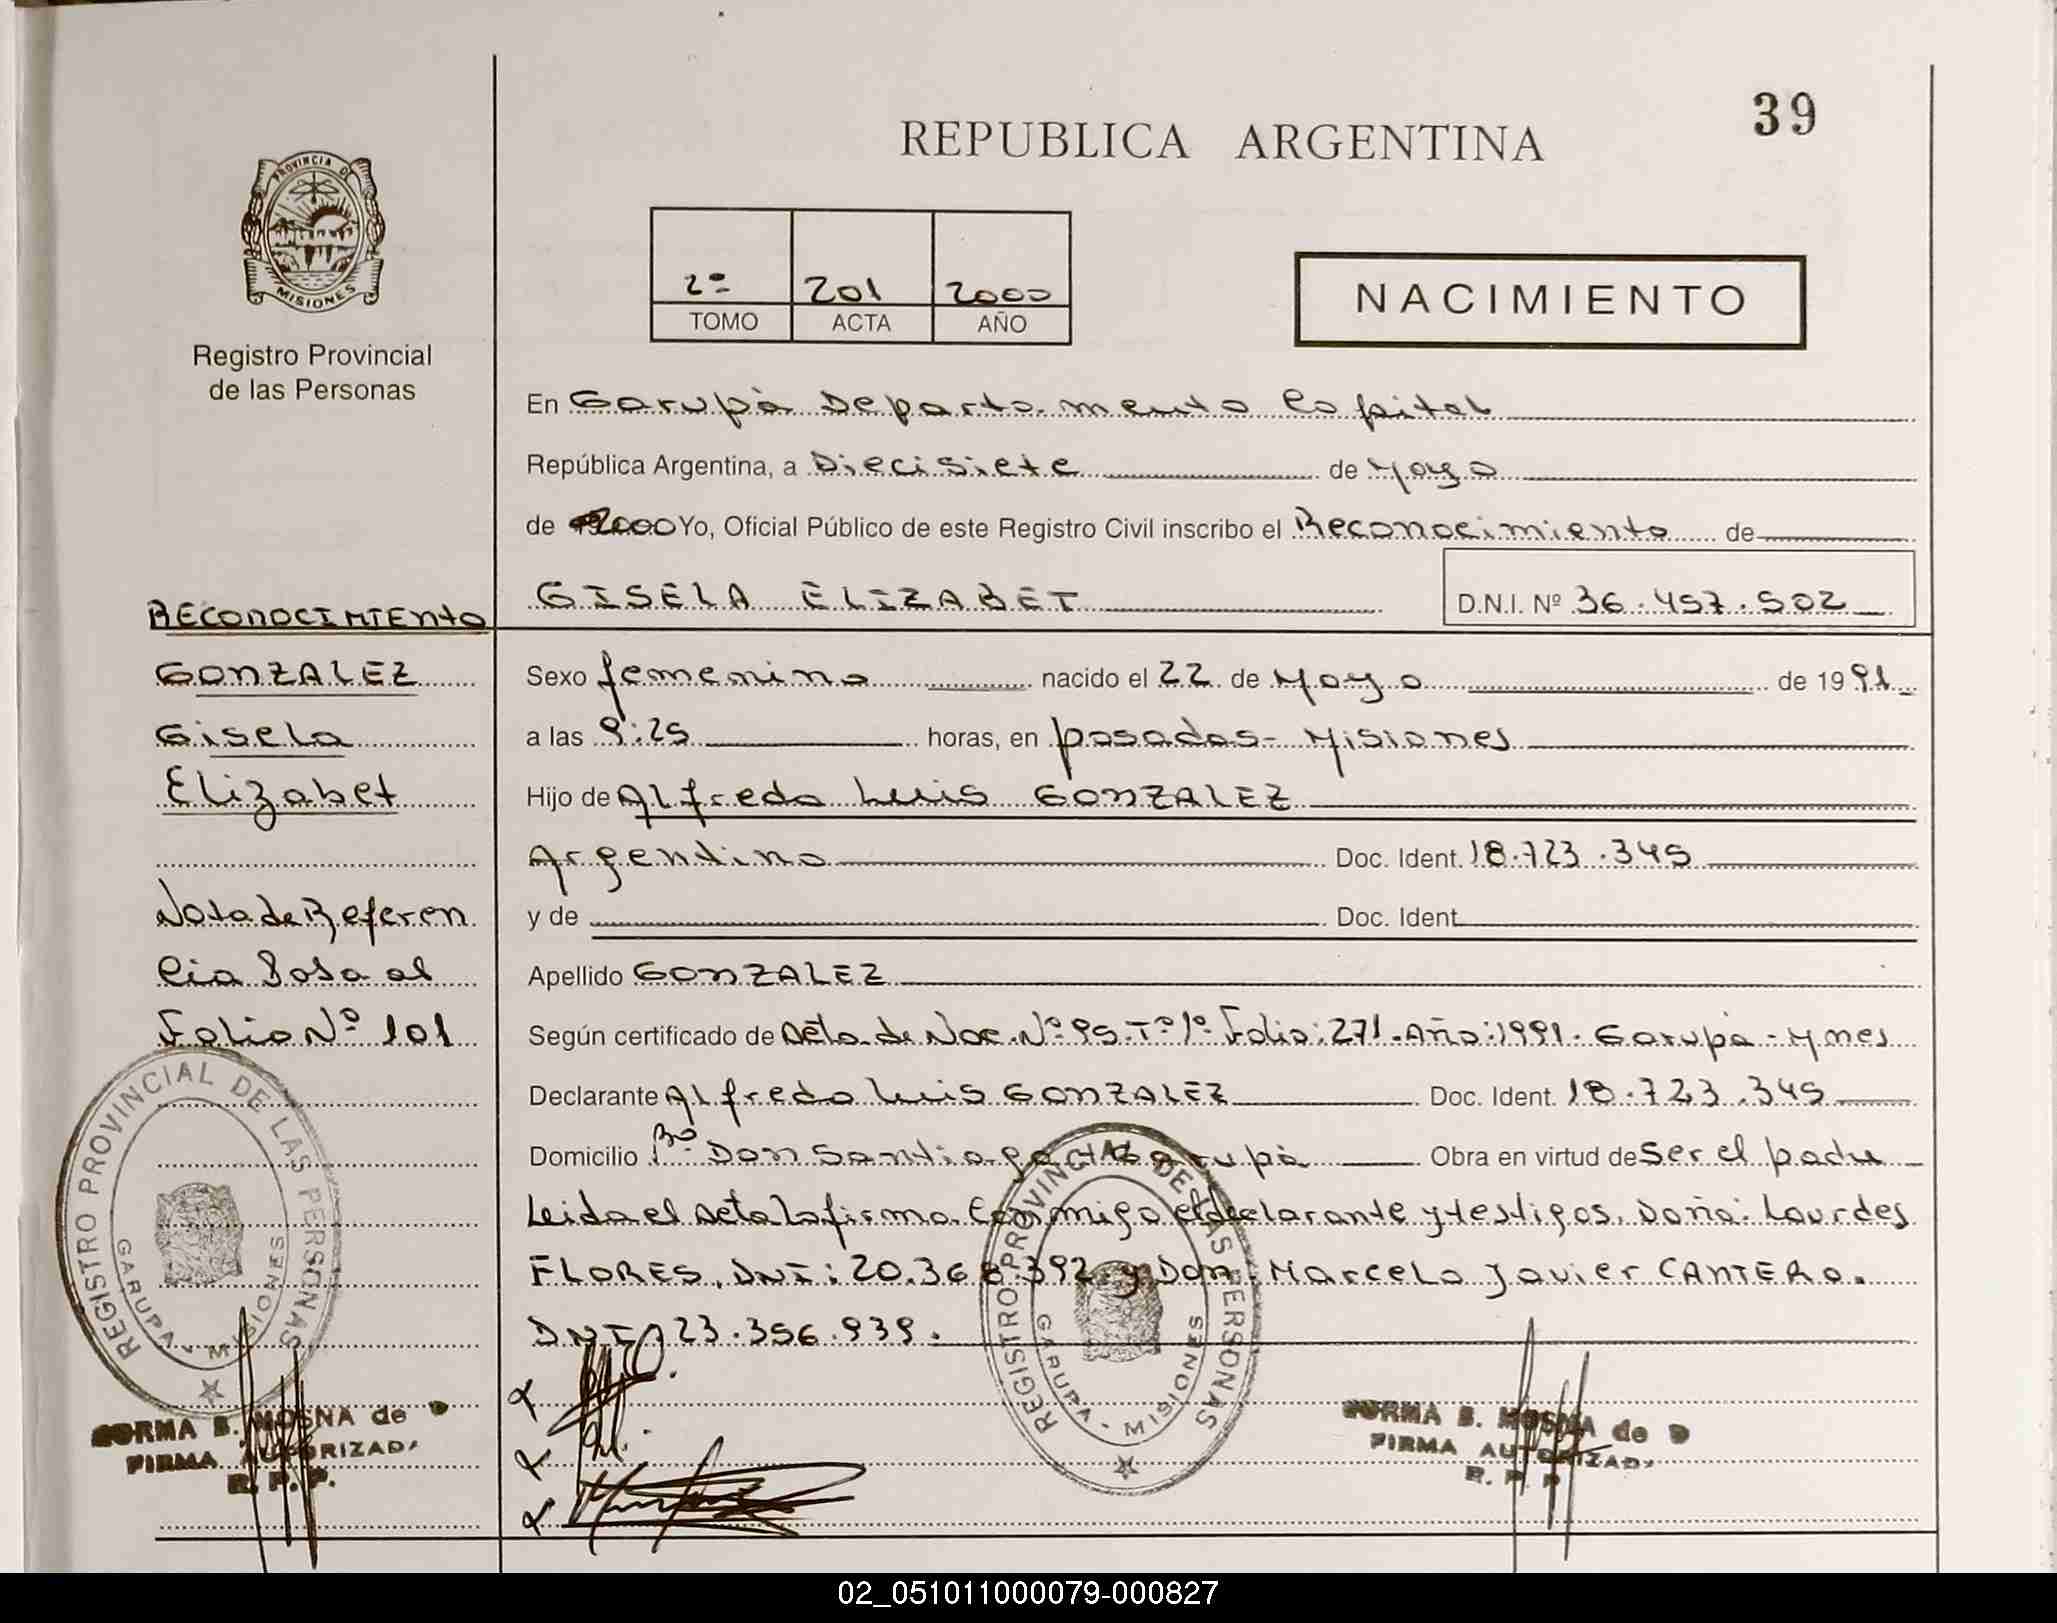 39
REPUBLICA ARGENTINA
PROVINCIA DE
MISIONES
Registro Provincial
de las Personas
2º 201 2000
TOMO ACTA AÑO
NACIMIENTO
En Garupá Departamento Capital
República Argentina, a Diecisiete de Mayo
de 2000 Yo, Oficial Público de este Registro Civil inscribo el Reconocimiento de
GISELA ELIZABET D.N.I. Nº 36.457.502
RECONOCIMIENTO
GONZALEZ
Gisela
Elizabet
Nota de Referen
cia Pasa al
Folio Nº 101
Sexo femenino nacido el 22 de Mayo de 1991
a las 9:25 horas, en Posadas - Misiones
Hijo de Alfredo Luis GONZALEZ
Argentino Doc. Ident. 18.723.345
y de Doc. Ident
Apellido GONZALEZ
Según certificado de Acta de Nac. Nº 95. Tº 1º Folio: 271. Año: 1991. Garupá - Mnes
Declarante Alfredo Luis GONZALEZ Doc. Ident. 18.723.345
Domicilio Bº Don Santiago Garupá Obra en virtud de Ser el padre
Leida el Acta la firma conmigo el declarante y testigos. Doña: Lourdes
FLORES. DNI: 20.368.392 y Don. Marcelo Javier CANTERO.
DNI 23.356.939.
REGISTRO PROVINCIAL DE LAS PERSONAS
GARUPA - MISIONES
REGISTRO PROVINCIAL DE LAS PERSONAS
GARUPA - MISIONES
NORMA B. MOSNA de D
FIRMA AUTORIZADA
R. P. P.
NORMA B. MOSNA de D
FIRMA AUTORIZADA
R. P. P
02_051011000079-000827